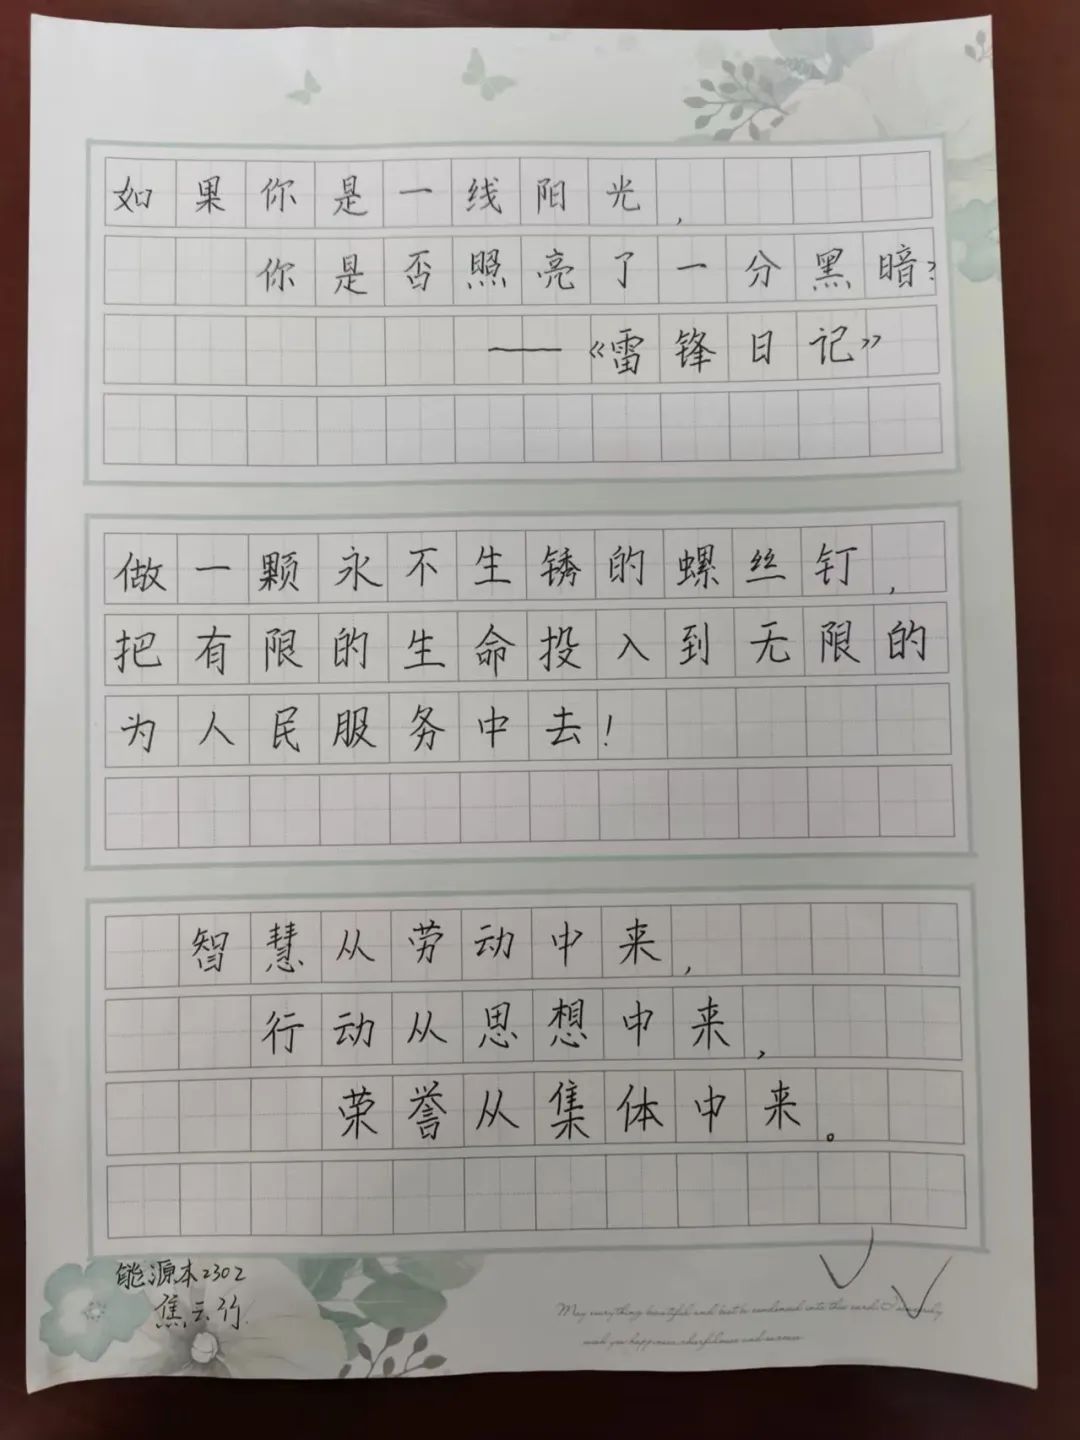 如果你是一线阳光，
你是否照亮了一分黑暗？
——《雷锋日记》
做一颗永不生锈的螺丝钉，
把有限的生命投入到无限的
为人民服务中去！
智慧从劳动中来，
行动从思想中来，
荣誉从集体中来。
能源本2302
焦云竹
May everything beautiful and best be condensed into this card. I sincerely
wish you happiness cheerfulness and success